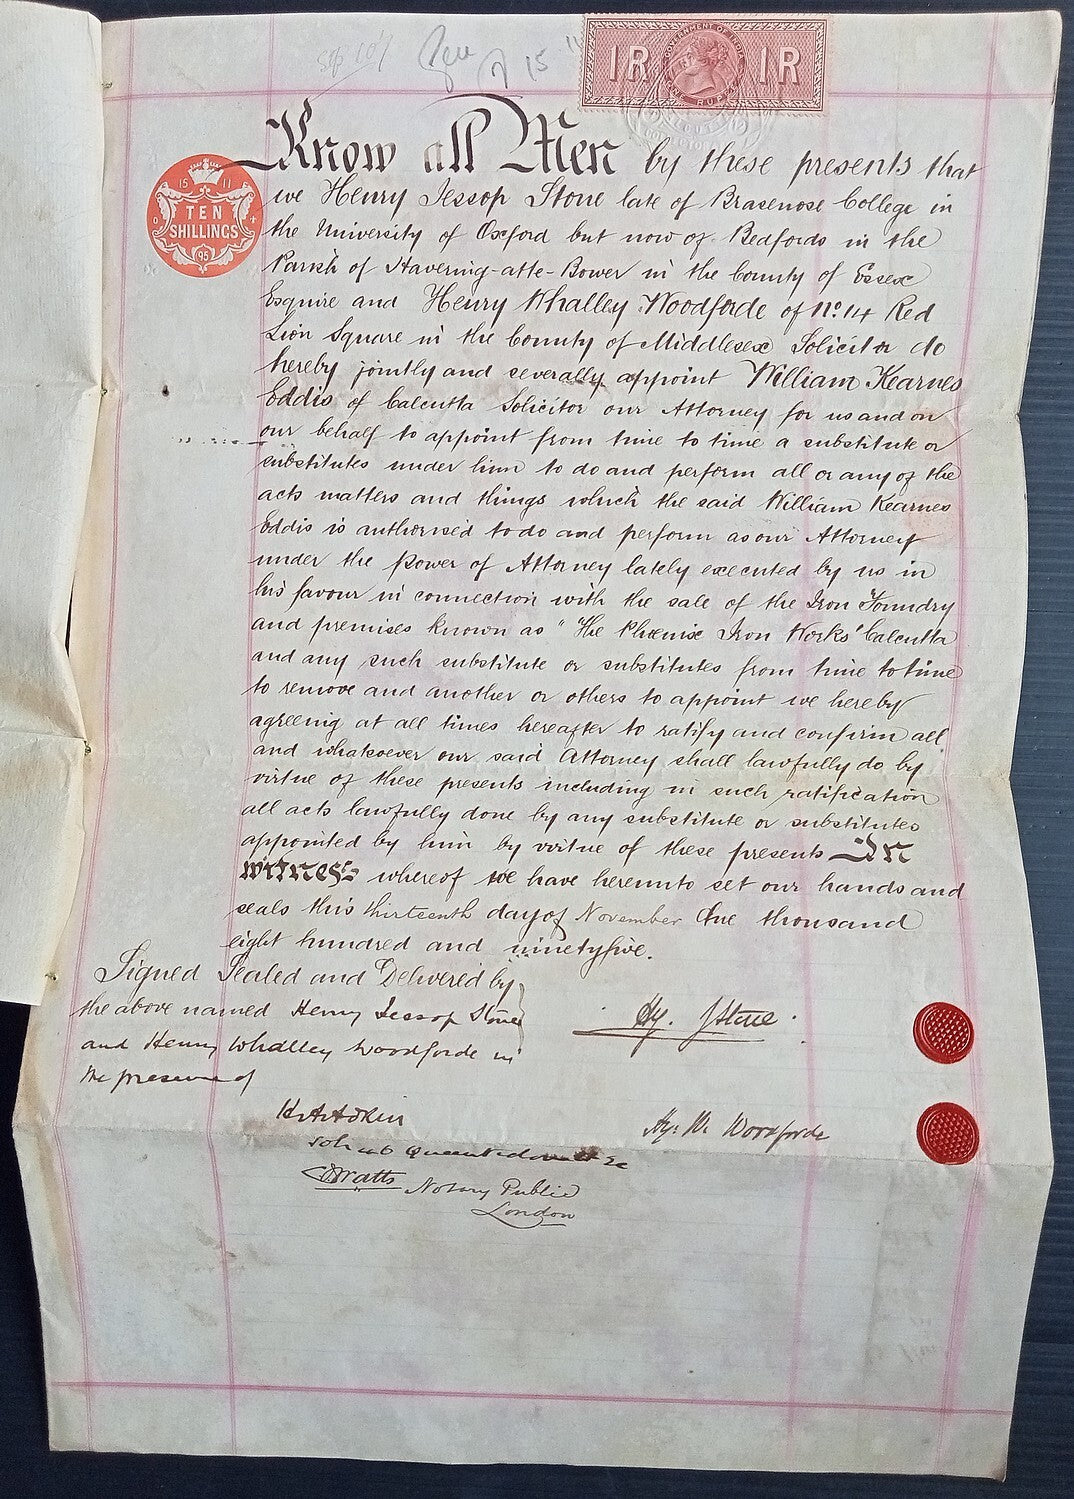 15
GOVERNMENT OF INDIA
1R 1R
ONE RUPEE
Know all Men by these presents that
15 11
TEN
SHILLINGS
95
we Henry Jessop Stone late of Brasenose College in
the University of Oxford but now of Bedfords in the
Parish of Havering-atte-Bower in the County of Essex
Esquire and Henry Whalley Woodforde of No. 14 Red
Lion Square in the County of Middlesex Solicitor do
hereby jointly and severally appoint William Kearnes
Eddis of Calcutta Solicitor our Attorney for us and on
our behalf to appoint from time to time a substitute or
substitutes under him to do and perform all or any of the
acts matters and things which the said William Kearnes
Eddis is authorised to do and perform as our Attorney
under the Power of Attorney lately executed by us in
his favour in connection with the sale of the Iron Foundry
and premises known as "The Phœnix Iron Works" Calcutta
and any such substitute or substitutes from time to time
to remove and another or others to appoint we hereby
agreeing at all times hereafter to ratify and confirm all
and whatsoever our said Attorney shall lawfully do by
virtue of these presents including in such ratification
all acts lawfully done by any substitute or substitutes
appointed by him by virtue of these presents In
witness whereof we have hereunto set our hands and
seals this thirteenth day of November One thousand
eight hundred and ninety five.
Signed Sealed and Delivered by
the above named Henry Jessop Stone
and Henry Whalley Woodforde in
the presence of
Hy. J Stone
Hy. W. Woodforde
Watts Notary Public
London